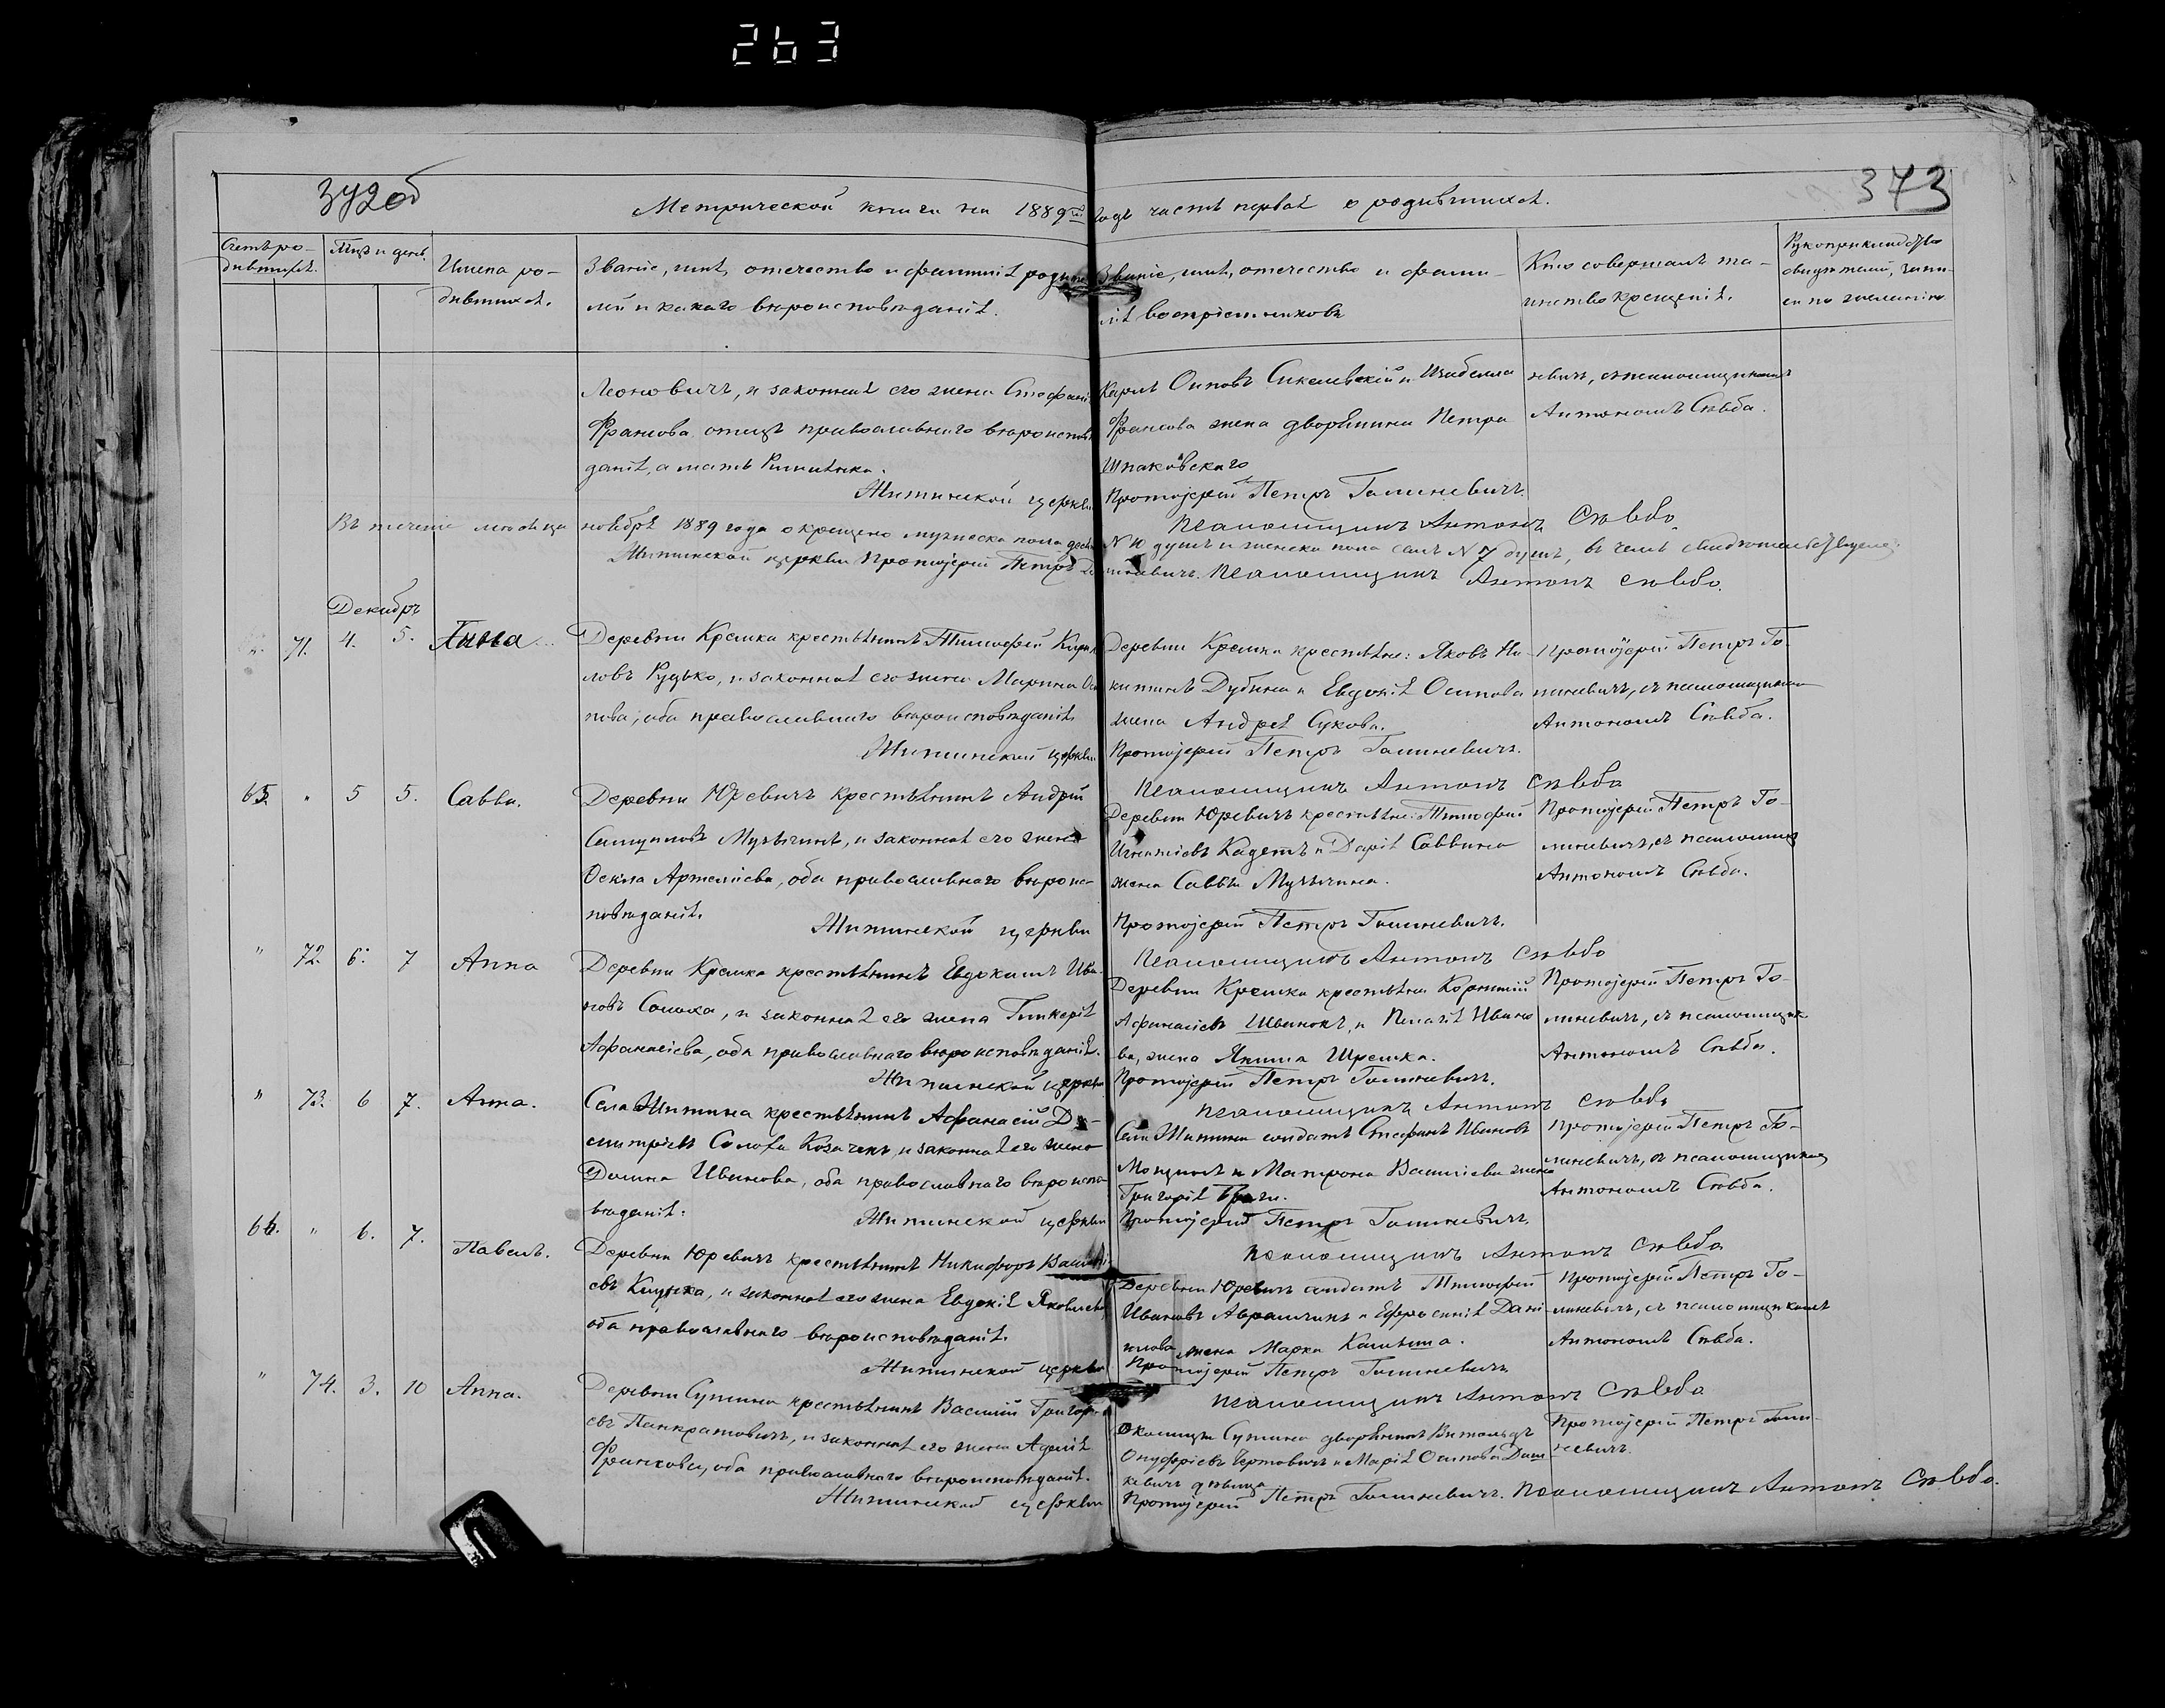 263
372об
373
Метрической книги на 1889й годъ часть первая о родившихся.
Счетъ родившихся.
Мцъ и день.
Имена родившихся.
Званіе, имя, отечество и фамилія родите
лей и какого вѣроисповѣданія.
Званіе, имя, отечество и фами-
лія воспріемниковъ
Кто совершалъ та-
инство крещенія.
Рукоприкладство
свидѣтелей, запи-
си по желанію
Леоновичъ, и законная его жена Стефанія
Францова отецъ православнаго вѣроисповѣ
данія, а мать Римлянка.
Житинской церкви
Карлъ Осиповъ и Изабелла
Францова жена дворянина Петра
Шпаковскаго
Протоіерей Петръ Голиневичъ.
Псаломщикъ Антонъ Сцѣбо.
невичъ, съ псаломщикомъ
Антономъ Сцѣбо.
Въ теченіе мѣсяца ноября 1889 года окрещено мужеска пола десять N 10 душъ и женска пола семь N 7 душъ, въ чемъ свидѣтельствуемъ:
Житинской церкви Протоіерей Петръ Голиневичъ. Псаломщикъ Антонъ Сцѣбо.
Декабрь
" 71. 4. 5. Анна
Деревни Кремка крестьянинъ Тимофей Кирил
ловъ Рудько, и законная его жена Марина Оси
пова, оба православнаго вѣроисповѣданія.
Житинской церкви
Деревни Кремки крестьяне: Яковъ Ни-
китинъ Дубина и Евдокія Осипова
жена Андрея Сукова.
Протоіерей Петръ Голиневичъ.
Псаломщикъ Антонъ Сцѣбо
Протоіерей Петръ Го-
линевичъ, съ псаломщикомъ
Антономъ Сцѣбо.
65. " 5 5. Савва.
Деревни Юревичъ крестьянинъ Андрей
Самуиловъ Мулярчикъ, и законная его жена
Фекла Артеміева, оба православнаго вѣроис-
повѣданія.
Житинской церкви
Деревни Юревичъ крестьяне: Тимофей
Игнатіевъ Кадетъ и Дарія Саввина
жена Саввы Мулярчика.
Протоіерей Петръ Голиневичъ.
Псаломщикъ Антонъ Сцѣбо
Протоіерей Петръ Го-
линевичъ, съ псаломщик
Антономъ Сцѣбо.
" 72. 6. 7 Анна
Деревни Кремка крестьянинъ Евдокимъ Ива-
новъ Солоха, и законная его жена Гликерія
Афанасіева, оба православнаго вѣроисповѣданія.
Житинской церкви
Деревни Кремки крестьяне Корнилій
Афанасіевъ Швинокъ, и Пелагія Ивано
ва, жена Якима Шремка.
Протоіерей Петръ Голиневичъ.
Псаломщикъ Антонъ Сцѣбо
Протоіерей Петръ Го-
линевичъ, съ псаломщик
Антономъ Сцѣбо.
" 73. 6 7. Анна.
Села Житина крестьянинъ Афанасій Ди-
митріевъ Солоха Козачекъ, и законная его жена
Домна Иванова, оба православнаго вѣроиспо-
вѣданія.
Житинской церкви
Села Житина солдатъ Стефанъ Ивановъ
и Матрона Василіева жена
Григорія
Протоіерей Петръ Голиневичъ.
Псаломщикъ Антонъ Сцѣбо
Протоіерей Петръ Го-
линевичъ, съ псаломщикомъ
Антономъ Сцѣбо.
66. " 6. 7. Павелъ.
Деревни Юревичъ крестьянинъ Никифоръ Василі-
евъ и законная его жена Евдокія Яковлева
оба православнаго вѣроисповѣданія.
Житинской церкви
Деревни Юревичъ солдатъ Тимофей
Ивановъ Аврамчикъ и Ефросинія Дани-
илова жена Марка
Протоіерей Петръ Голиневичъ
Псаломщикъ Антонъ Сцѣбо
Протоіерей Петръ Го-
линевичъ, съ псаломщикомъ
Антономъ Сцѣбо.
" 74. 3. 10 Анна.
Деревни Сутина крестьянинъ Василій Григорі-
евъ Панкратовичъ, и законная его жена Аделія
Францова, оба православнаго вѣроисповѣданія.
Житинской церкви
Околицы Сутина дворянинъ Витольдъ
Онуфріевъ Чертовичъ и Марія Осипова Даш-
кевичъ дѣвица
Протоіерей Петръ Голиневичъ. Псаломщикъ Антонъ Сцѣбо.
Протоіерей Петръ Голи-
невичъ.